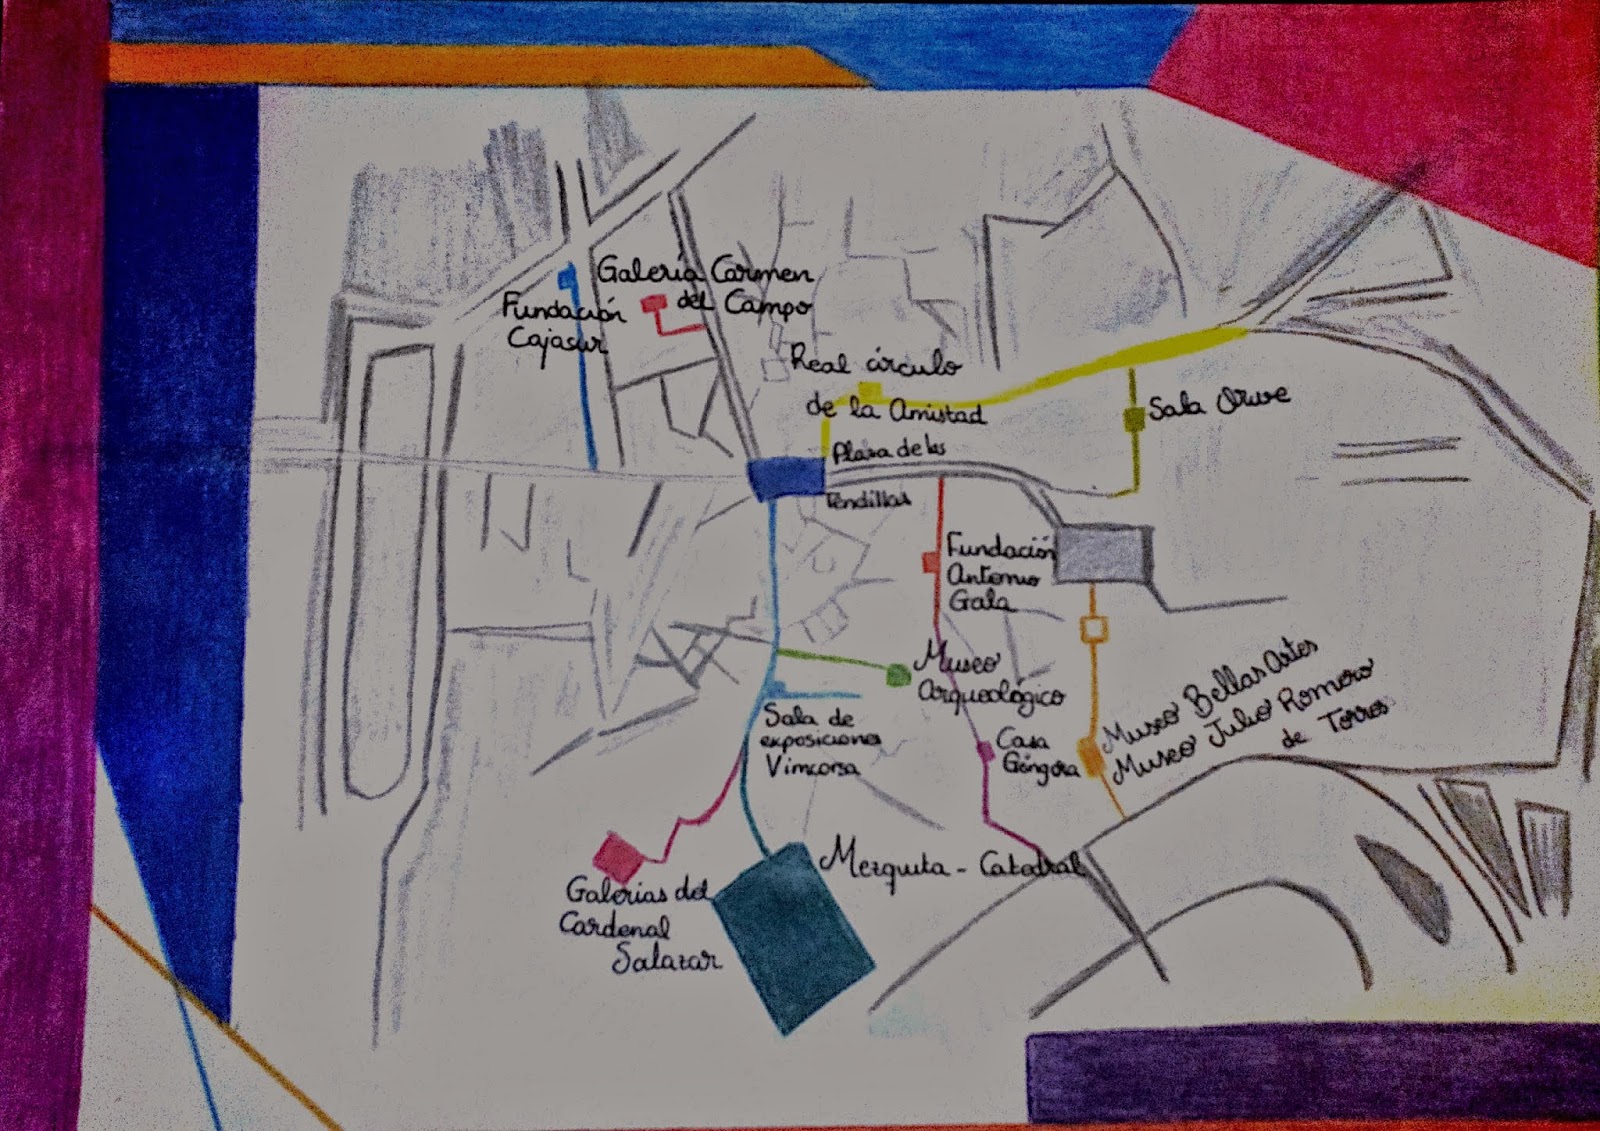 Galería Carmen
del Campo
Fundación
Cajasur
Real círculo
de la Amistad
Sala Orive
Plaza de las
Tendillas
Fundación
Antonio
Gala
Museo
Arqueológico
Museo Bellas Artes
Museo Julio Romero
de Torres
Sala de
exposiciones
Vimcorsa
Casa
Góngora
Mezquita - Catedral
Galerias del
Cardenal
Salazar